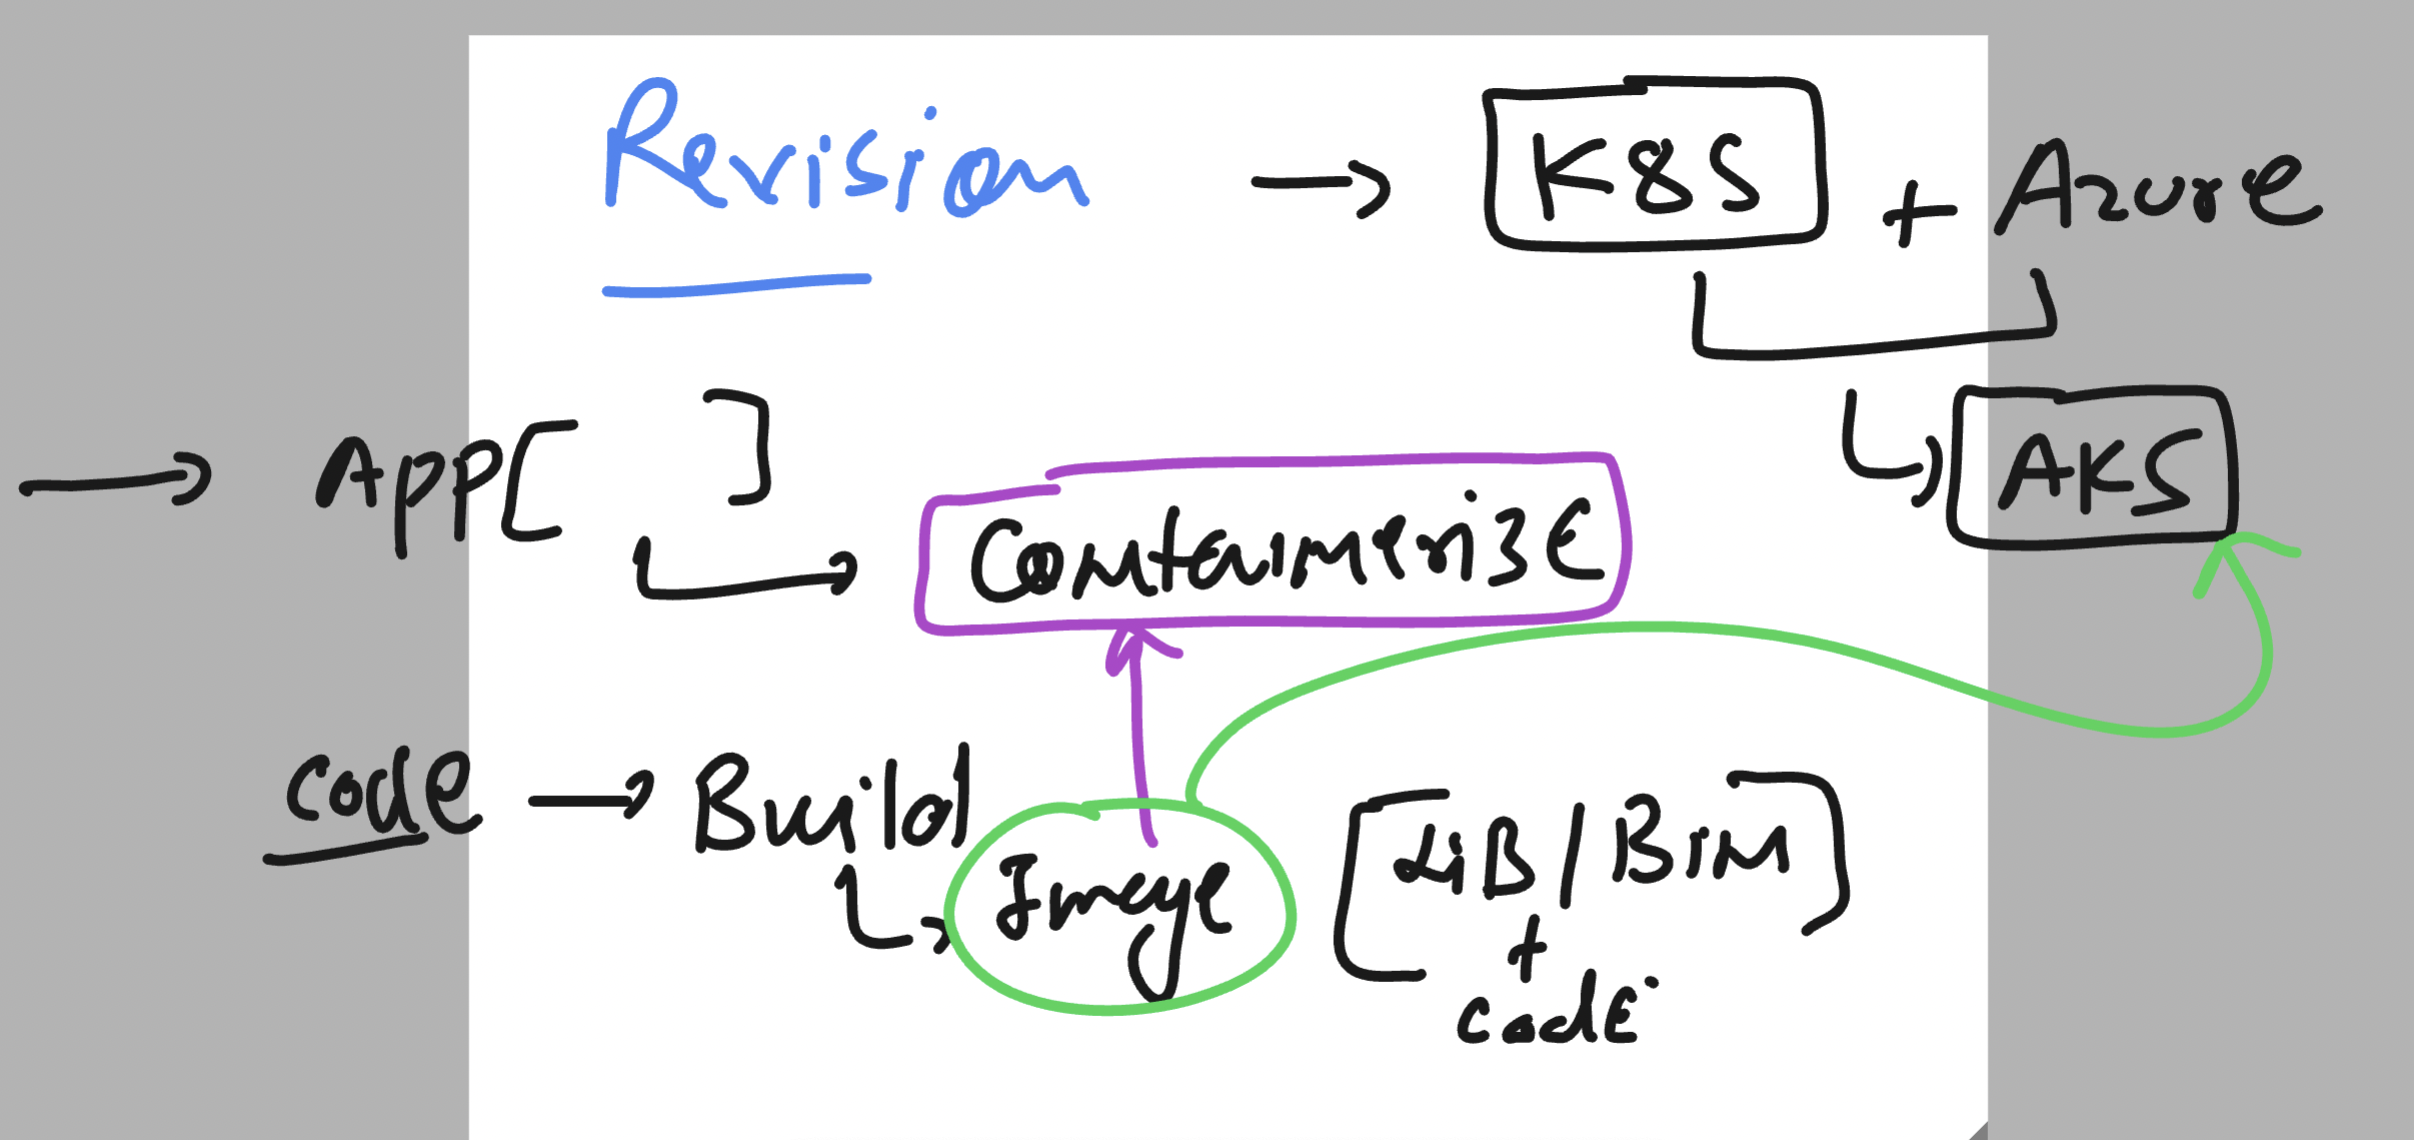 Revision → K8S + Azure
AKS
→ App [ ]
Containerize
Code → Build
Image [LIB/BIN
+
Code]